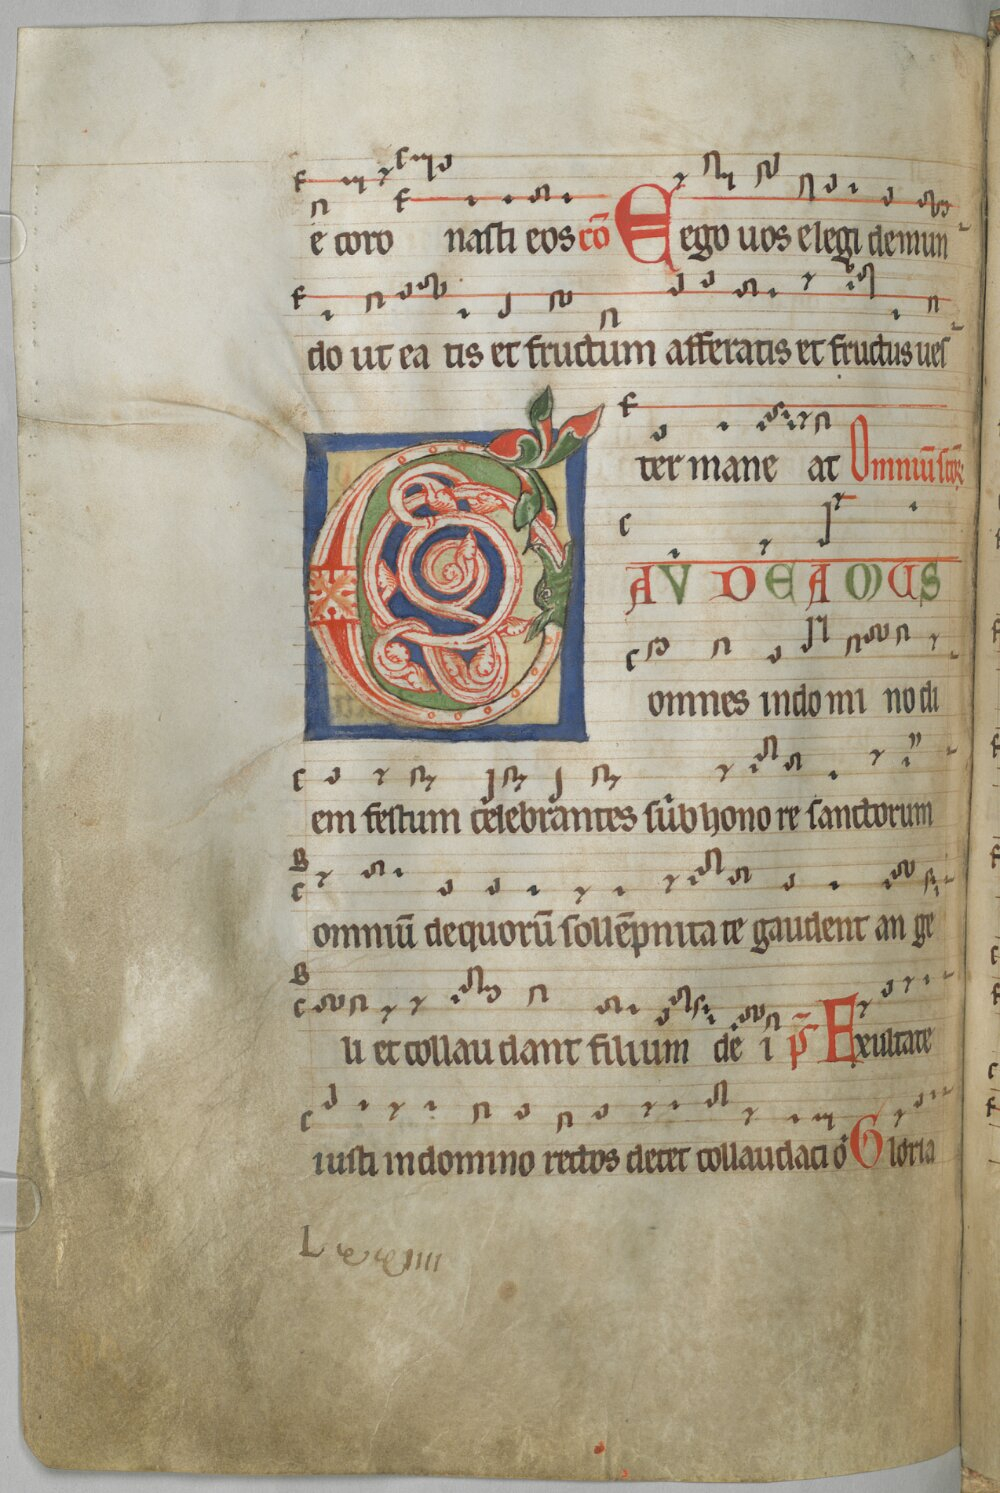 e coro nasti eos cō Eego uos elegi demun
do ut ea tis et fructum afferatis et fructus ues
ter mane at Omniū scōꝝ
GAVDEAMUS
omnes in do mi no di
em festum celebrantes sub hono re sanctorum
omniū de quorū sollēpnita te gaudent an ge
li et collau dant filium de i p̄s Exultate
iusti in domino rectos decet collaudaci o Gloria